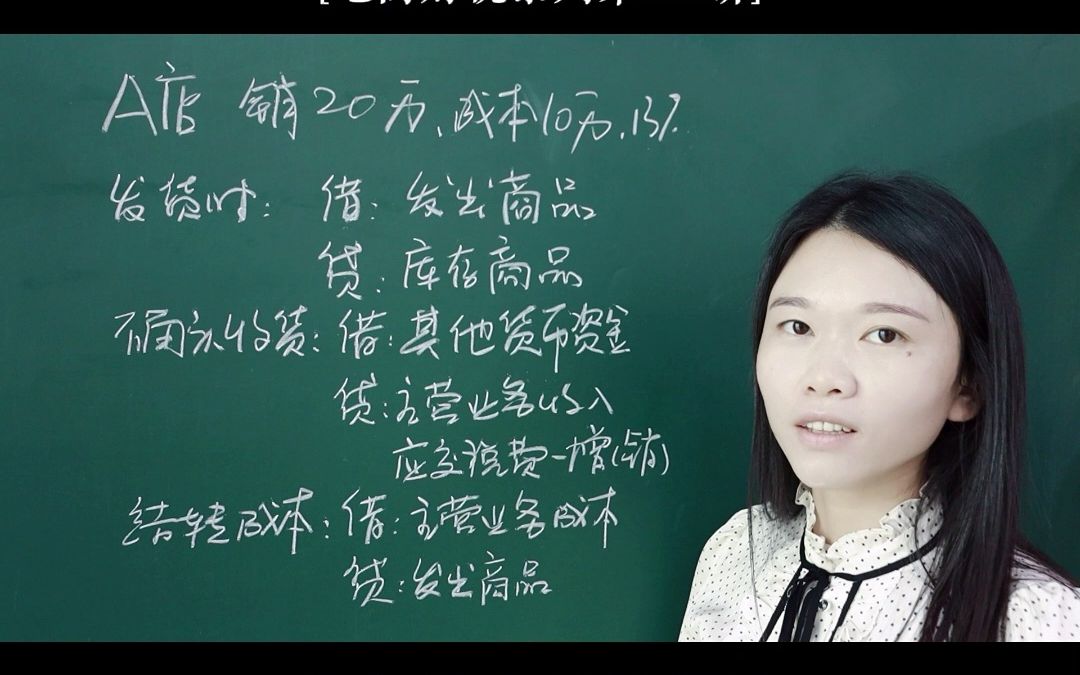 A店 销20万、成本10万,13%
发货时: 借: 发出商品
贷: 库存商品
确认收货: 借: 其他货币资金
贷: 主营业务收入
应交税费-增(销)
结转成本: 借: 主营业务成本
贷: 发出商品